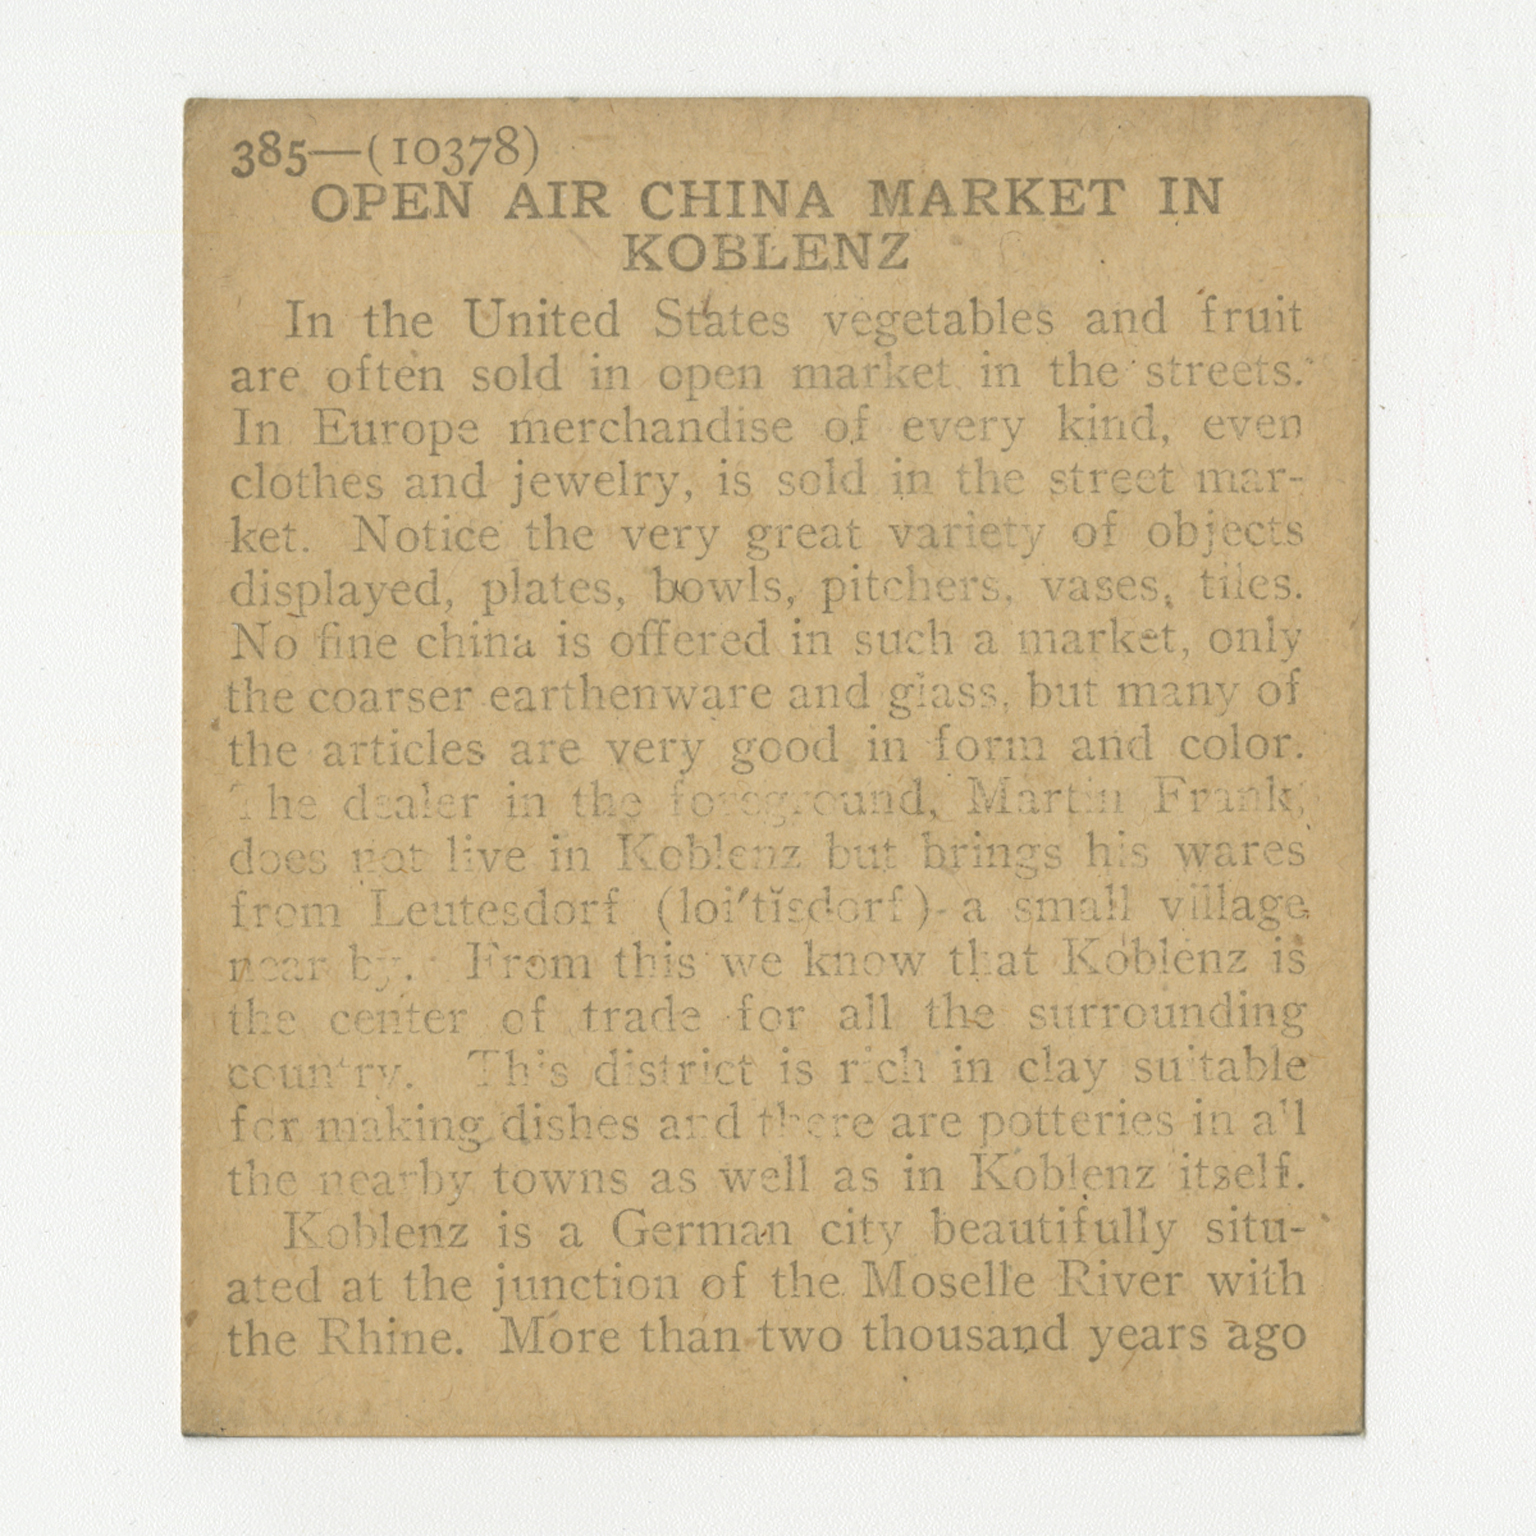 385—(10378)
OPEN AIR CHINA MARKET IN
KOBLENZ
In the United States vegetables and fruit
are often sold in open market in the streets.
In Europe merchandise of every kind, even
clothes and jewelry, is sold in the street mar-
ket. Notice the very great variety of objects
displayed, plates, bowls, pitchers, vases, tiles.
No fine china is offered in such a market, only
the coarser earthenware and glass, but many of
the articles are very good in form and color.
The dealer in the foreground, Martin Frank,
does not live in Koblenz but brings his wares
from Leutesdorf (loi′tĭsdorf) a small village
near by. From this we know that Koblenz is
the center of trade for all the surrounding
country. This district is rich in clay suitable
for making dishes and there are potteries in all
the nearby towns as well as in Koblenz itself.
Koblenz is a German city beautifully situ-
ated at the junction of the Moselle River with
the Rhine. More than two thousand years ago